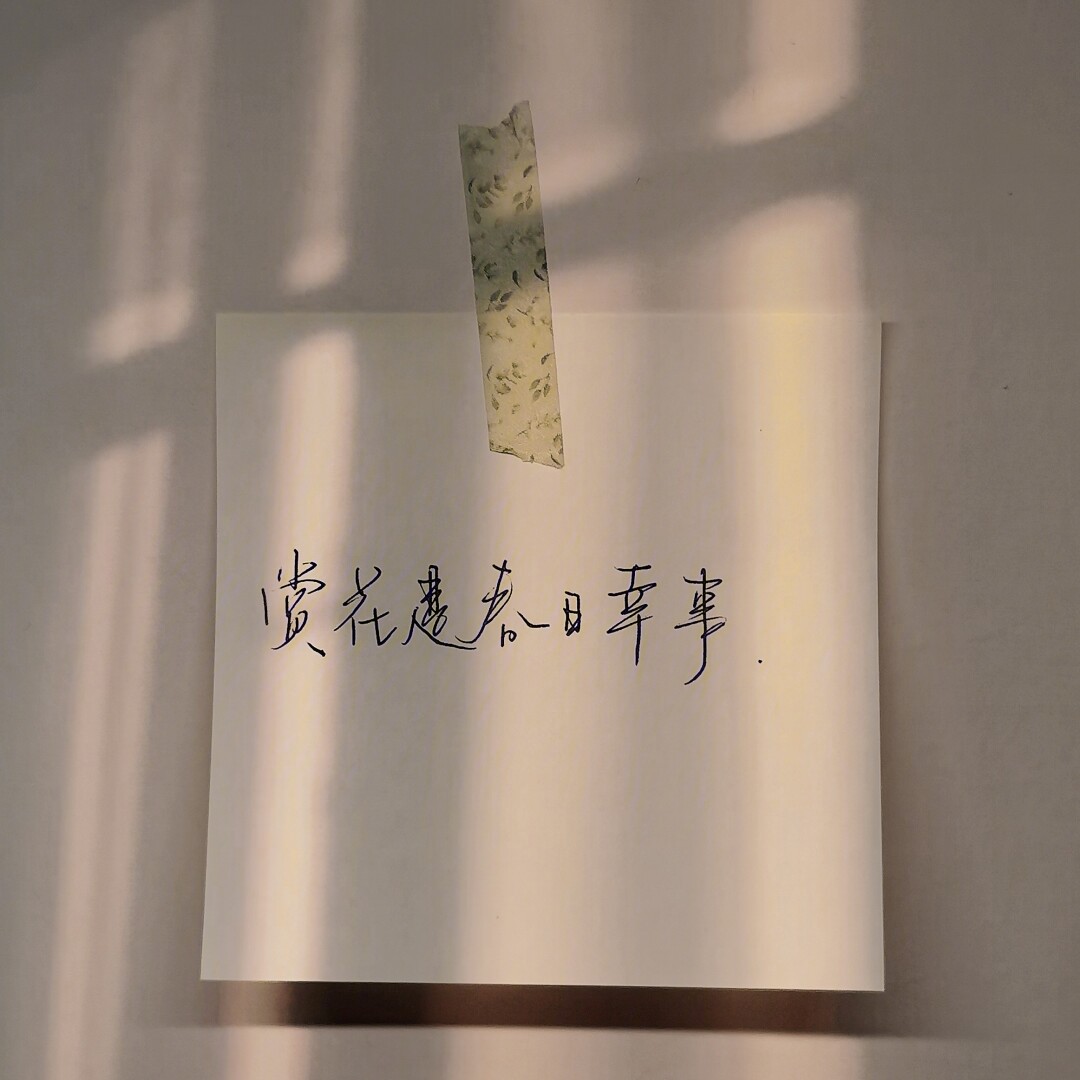 赏花是春日幸事.